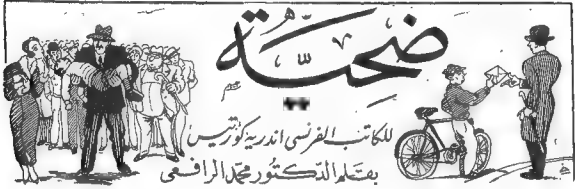 ضحية
للكاتب الفرنسى اندريه كوتريس
بقلم الدكتور محمد الرافعى